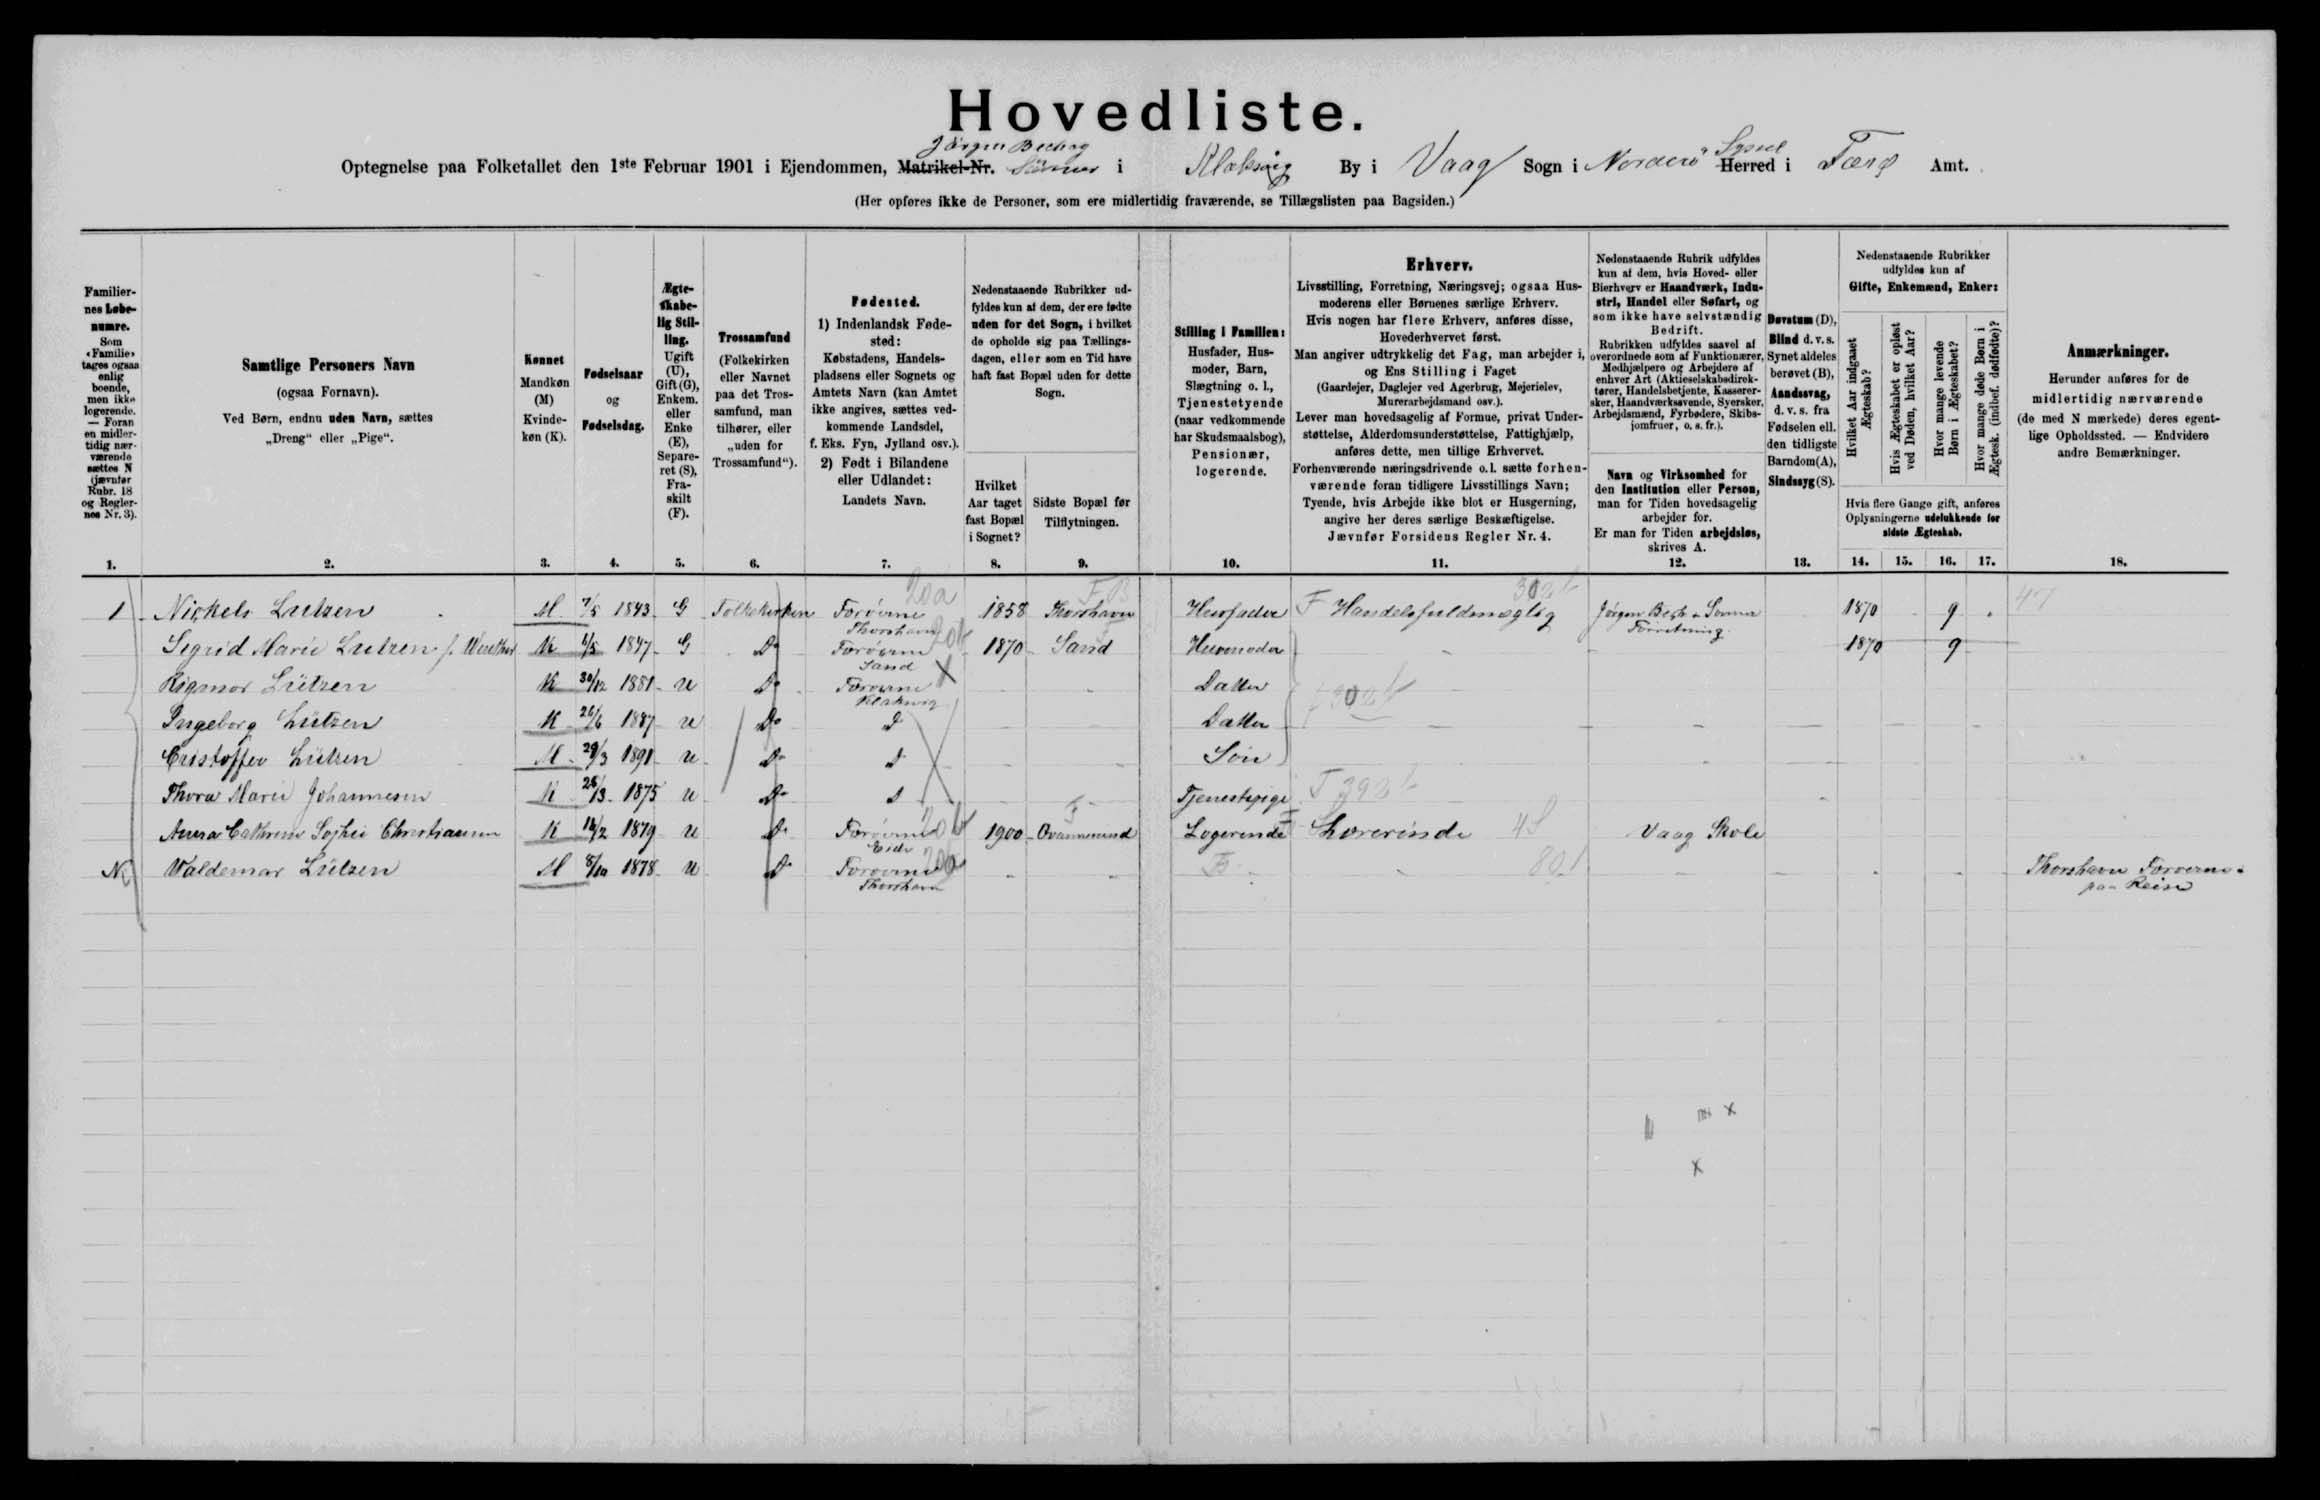 Hovedliste.
Jörgen Bechog
Optegnelse paa Folketallet den 1ste Februar 1901 i Ejendommen, Matrikel-Nr. Sönner i Klaksvig By i Vaag Sogn i Norderö Syssel Herred i Færø Amt.
(Her opføres ikke de Personer, som ere midlertidig fraværende, se Tillægslisten paa Bagsiden.)
Familiernes Løbenumre.
Som «Familie» tages ogsaa enlig boende, men ikke logerende. — Foran en midlertidig nærværende sættes N (jævnfør Rubr. 18 og Reglernes Nr. 3).
1.
Samtlige Personers Navn
(ogsaa Fornavn).
Ved Børn, endnu uden Navn, sættes
„Dreng" eller „Pige".
2.
Kønnet
Mandkøn (M)
Kvindekøn (K).
3.
Fødselsaar
og
Fødselsdag.
4.
Ægteskabelig Stilling.
Ugift (U), Gift (G), Enkem. eller Enke (E), Separeret (S), Fraskilt (F).
5.
Trossamfund
(Folkekirken eller Navnet paa det Trossamfund, man tilhører, eller „uden for Trossamfund").
6.
Fødested.
1) Indenlandsk Fødested:
Købstadens, Handelspladsens eller Sognets og Amtets Navn (kan Amtet ikke angives, sættes vedkommende Landsdel, f. Eks. Fyn, Jylland osv.).
2) Født i Bilandene eller Udlandet:
Landets Navn.
7.
Nedenstaaende Rubrikker udfyldes kun af dem, der ere fødte uden for det Sogn, i hvilket de opholde sig paa Tællingsdagen, eller som en Tid have haft fast Bopæl uden for dette Sogn.
Hvilket Aar taget fast Bopæl i Sognet?
8.
Sidste Bopæl før Tilflytningen.
9.
Stilling i Familien:
Husfader, Husmoder, Barn, Slægtning o. l., Tjenestetyende (naar vedkommende har Skudsmaalsbog), Pensionær, logerende.
10.
Erhverv.
Livsstilling, Forretning, Næringsvej; ogsaa Husmoderens eller Børnenes særlige Erhverv.
Hvis nogen har flere Erhverv, anføres disse, Hovederhvervet først.
Man angiver udtrykkelig det Fag, man arbejder i, og Ens Stilling i Faget
(Gaardejer, Daglejer ved Agerbrug, Mejerielev, Murerarbejdsmand osv.).
Lever man hovedsagelig af Formue, privat Understøttelse, Alderdomsunderstøttelse, Fattighjælp, anføres dette, men tillige Erhvervet.
Forhenværende næringsdrivende o. l. sætte forhenværende foran tidligere Livsstillings Navn;
Tyende, hvis Arbejde ikke blot er Husgerning, angive her deres særlige Beskæftigelse.
Jævnfør Forsidens Regler Nr. 4.
11.
Nedenstaaende Rubrik udfyldes kun af dem, hvis Hoved- eller Bierhverv er Haandværk, Industri, Handel eller Søfart, og som ikke have selvstændig Bedrift.
Rubrikken udfyldes saavel af overordnede som af Funktionærer, Medhjælpere og Arbejdere af enhver Art (Aktieselskabsdirektører, Handelsbetjente, Kasserersker, Haandværkssvende, Syersker, Arbejdsmænd, Fyrbødere, Skibsjomfruer, o. s. fr.).
Navn og Virksomhed for den Institution eller Person, man for Tiden hovedsagelig arbejder for.
Er man for Tiden arbejdsløs, skrives A.
12.
Døvstum (D), Blind d. v. s. Synet aldeles berøvet (B), Aandssvag, d. v. s. fra Fødselen ell. den tidligste Barndom (A), Sindssyg (S).
13.
Nedenstaaende Rubrikker udfyldes kun af
Gifte, Enkemænd, Enker:
Hvilket Aar indgaaet Ægteskab?
Hvis Ægteskabet er opløst ved Døden, hvilket Aar?
Hvor mange levende Børn i Ægteskabet?
Hvor mange døde Børn i Ægtesk. (indbef. dødfødte)?
Hvis flere Gange gift, anføres Oplysningerne udelukkende for sidste Ægteskab.
14. 15. 16. 17.
Anmærkninger.
Herunder anføres for de midlertidig nærværende (de med N mærkede) deres egentlige Opholdssted. — Endvidere andre Bemærkninger.
18.
1 Nickels Lutzen M 7/5 1843 G Folkekirken Færöerne Thorshavn 20a 1858 Thorshavn FB Husfader F Handelsfuldmægtig 302b Jörgen Bech & Sönner Forretning 1870 9 47
Sigrid Marie Lutzen f. K 6/5 1847 G Do Færöerne Sand 20b 1870 Sand Husmoder 1870 9
Rigmor Lützen K 30/12 1881 U Do Færöerne Klaksvig X Datter
Ingeborg Lützen K 26/6 1887 U Do D Datter f 302b
Cristoffer Lützen M 29/3 1891 U Do D Sön
Thora Marie Johannesen K 25/3 1875 U Do D Tjenestepige T 302b
Anna Cathrine Sofie Christiansen K 12/2 1879 U Do Færöerne Eide 20b 1900 Qvannesund F Logerende F Lærerinde 4S Vaag Skole
N Valdemar Lützen M 8/10 1878 U Do Færöerne Thorshavn 20a 801 Thorshavn Færöerne paa Reise